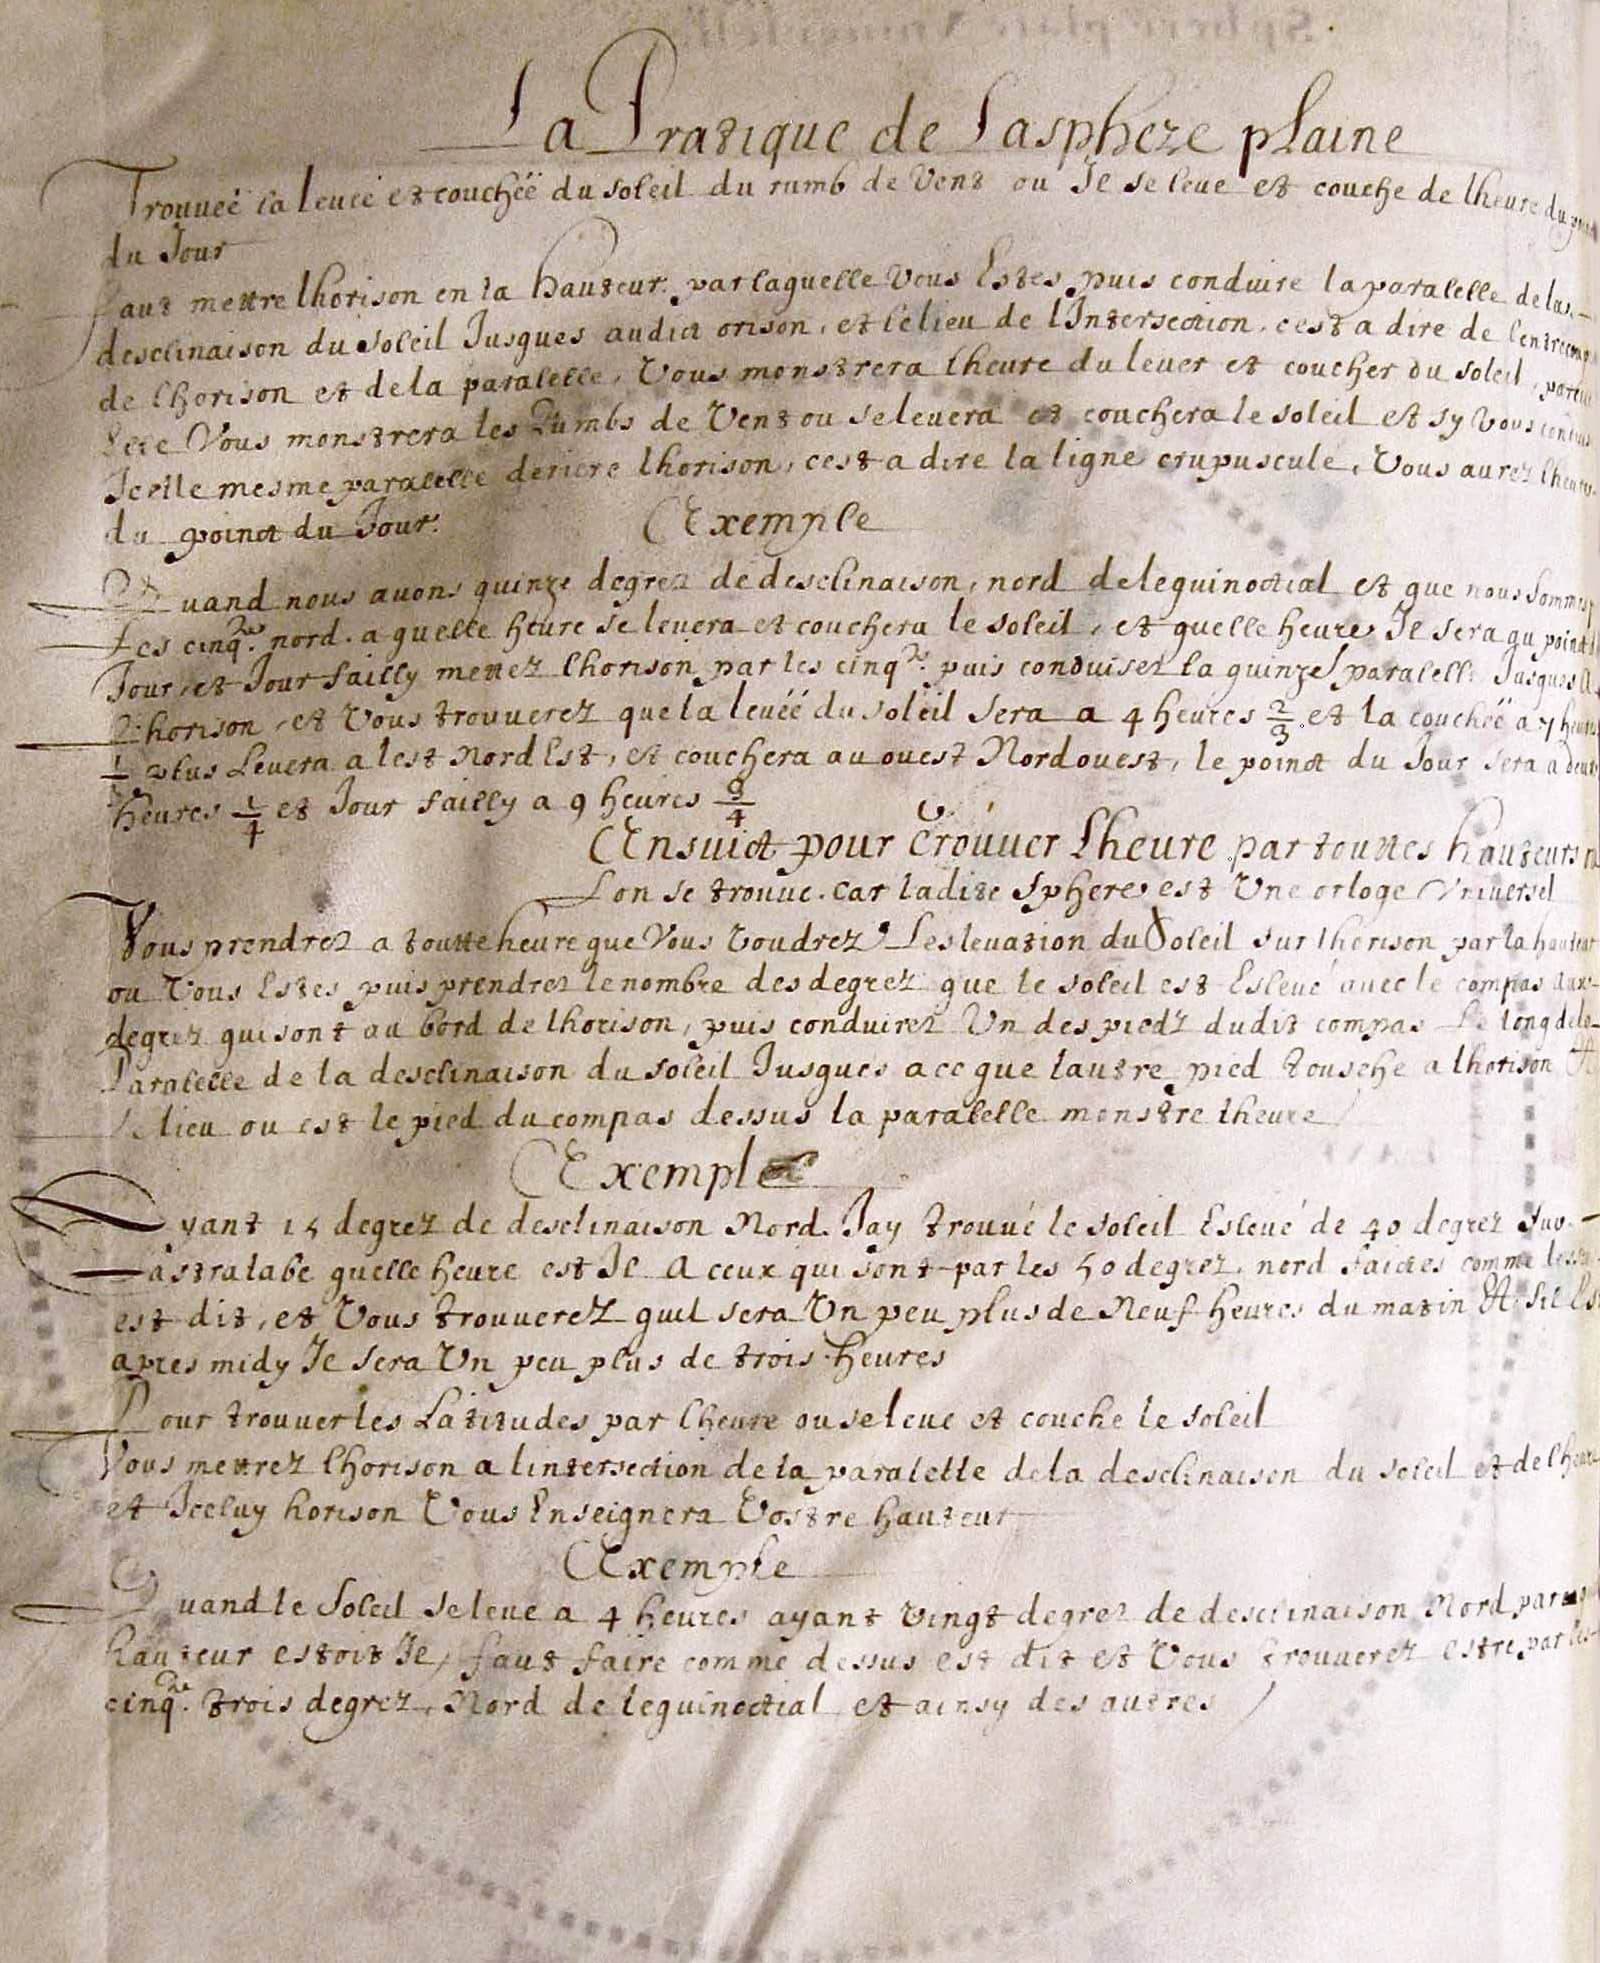 La Pratique de Lasphere plaine
Trouveé la leueé et coucheë du soleil du rumb de Vent ou Il se leue et couche de lheure du point
du Jour
faut mettre lhorison en la hauteur. par laquelle Vous Estes puis conduire la paralelle de la
desclinaison du soleil Jusques audict orison, et le lieu de lIntersection, cest a dire de lentrecoup
de lhorison et de la paralelle, Vous monstrera lheure du leuer et coucher du soleil,
Vous monstrera les Rumbs de Vent ou se leuera et couchera le soleil et sy vous
Icelle mesme paralelle deriere lhorison, cest a dire la ligne crupuscule, Vous aurez lheure
du poinct du Jour.
Exemple
Quand nous auons quinze degrez de desclinaison, nord de lequinoctial et que nous sommes
Les cinq.te nord. a quelle heure se leuera et couchera le soleil, et quelle heure Il sera au poinct
Jour, et Jour failly mettez lhorison par les cinq.te puis conduisez la quinze paralelle Jusques a
lhorison, et Vous trouuerez que la leueë du soleil sera a 4 heures 2/3 et la coucheë a 7 heures
1/3 plus Leuera a lest Nord Est, et couchera au ouest Nordouest, le poinct du Jour sera a deux
heures 1/4 et Jour failly a 9 heures 3/4
Ensuict pour trouuer Lheure par touttes hauteurs
Lon se trouue. car ladite sphere est Une orloge Vniversel
Vous prendrez a toutte heure que Vous Voudrez Lesleuation du Soleil sur lhorison par la hauteur
ou Vous Estes puis prendrez le nombre des degrez que le soleil est Esleué auec le compas aux
degrez qui sont au bord de lhorison, puis conduirez Un des piedz dudit compas Le long de la
Paralelle de la desclinaison du soleil Jusques a ce que lautre pied tousche a lhorison Et
Le lieu ou est le pied du compas dessus la paralelle monstre lheure
Exemple
Ayant 15 degrez de desclinaison Nord. Jay trouué le soleil Esleué de 40 degrez sur
lastralabe quelle heure est Il A ceux qui sont par les 50 degrez. nord faictes comme
est dit, et Vous trouuerez quil sera Un peu plus de Neuf heures du matin Et sil Est
apres midy Il sera Un peu plus de trois heures
Pour trouuer les Latitudes par lheure ou se leue et couche le soleil
Vous mettrez lhorison a lintersection de la paralelle de la desclinaison du soleil et de lheure
et Iceluy horison Vous Enseignera Vostre hauteur
Exemple
Quand le Soleil se leue a 4 heures ayant vingt degrez de desclinaison Nord par
hauteur estoit Il, faut faire comme dessus est dit et Vous trouuerez estre par les
cinq.te trois degrez, Nord de lequinoctial et ainsy des autres